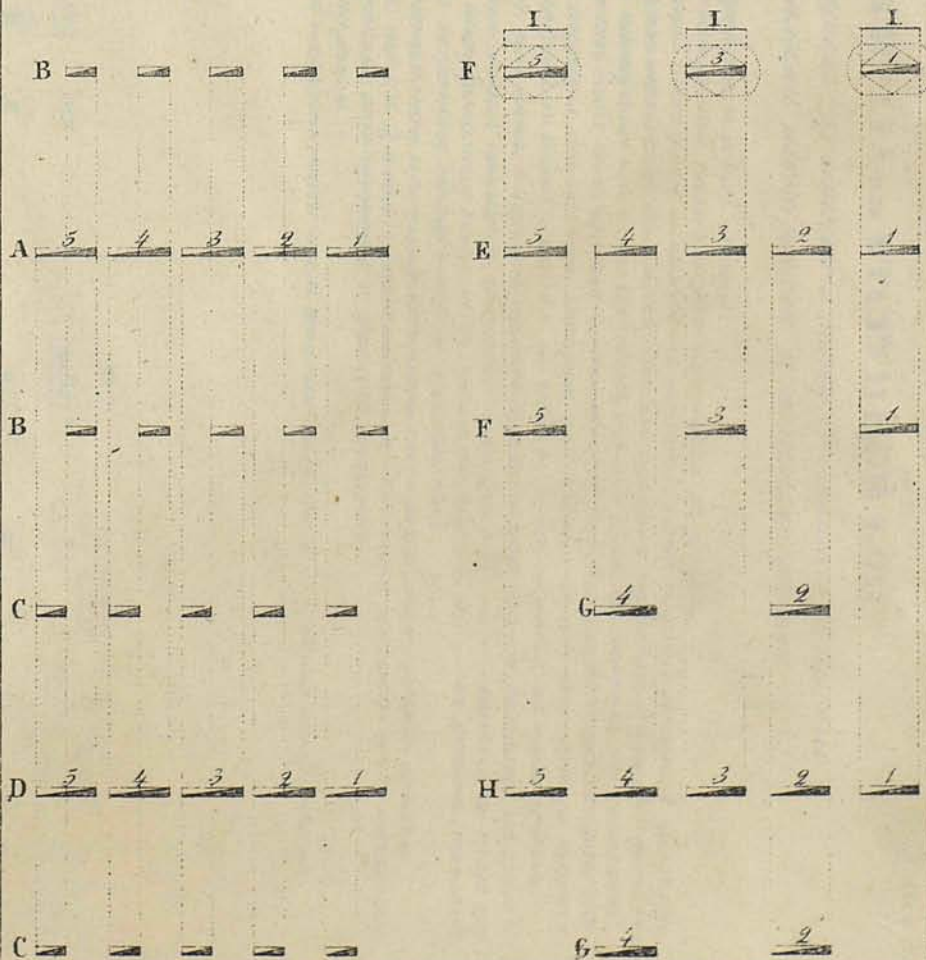 I. I. I.
B F 5 3 1
A 5 4 3 2 1 E 5 4 3 2 1
B F 5 3 1
C G 4 2
D 5 4 3 2 1 H 5 4 3 2 1
C G 4 2